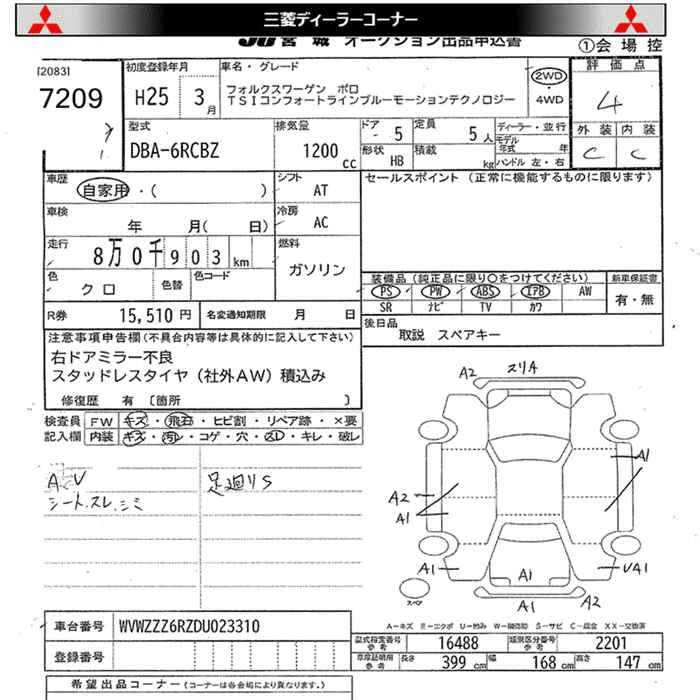 三菱ディーラーコーナー
JU宮城 オークション出品申込書
①会場控
[2083]
7209
初度登録年月
H25 3月
車名・グレード
フォルクスワーゲン ポロ
TSIコンフォートラインブルーモーションテクノロジー
2WD
・
4WD
評価点
4
外装 内装
C C
型式
DBA-6RCBZ
排気量
1200cc
ドア
- 5
形状
HB
定員
5人
積載
kg
ディーラー・並行
モデル年式 年
ハンドル 左・右
車歴
自家用・( )
シフト
AT
車検
年 月( 日)
冷房
AC
走行
8万0千903km
燃料
ガソリン
色
クロ
色替
色コード
R券 15,510円
名変通知期限 月 日
セールスポイント (正常に機能するものに限ります)
装備品(純正品に限り○をつけてください)
PS PW ABS エアB AW
SR ナビ TV カワ
新車保証書
有・無
後日品
取説 スペアキー
注意事項申告欄(不具合内容等は具体的に記入して下さい)
右ドアミラー不良
スタッドレスタイヤ(社外AW)積込み
修復歴 有 〔箇所 〕
検査員記入欄
FW キズ・飛石・ヒビ割・リペア跡・×要
内装 キズ・汚れ・コゲ・穴・スレ・キレ・破レ
シート.スレ.シミ
足廻りS
A2 スリA
A1
A2
A1
A1 A1 UA1
A1 A2
スペア
A-キズ E-エクボ U-凹み W-補修跡 S-サビ C-腐食 XX-交換済
車台番号 WVWZZZ6RZDU023310
登録番号
型式指定番号
参考
16488
類別区分番号
参考
2201
車庫証明用
参考
長さ 399cm 幅 168cm 高さ 147cm
希望出品コーナー(コーナーは各会場により異なります。)